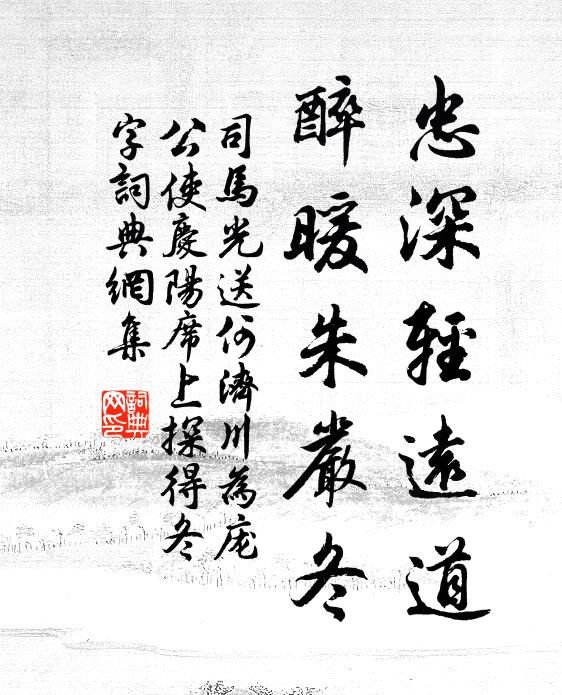 忠深輕遠道
醉暖朱嚴冬
司馬光送何濟川為庞
公使慶陽席上探得冬
字詞典網集
詞典
网印